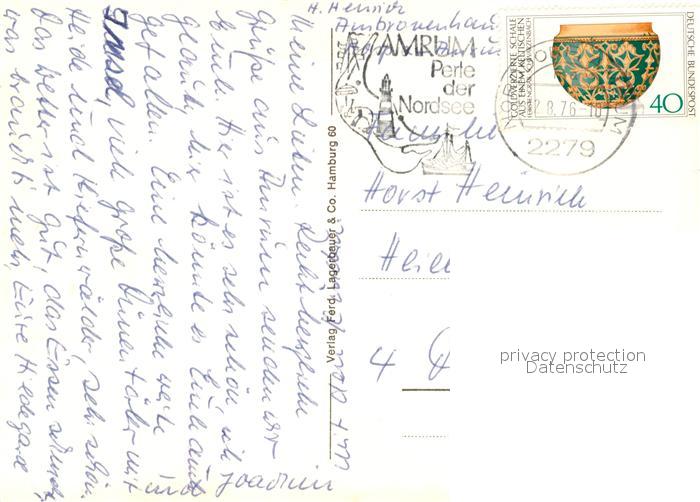 H. Heinrich
Ambronenhaus
AMRUM
Perle
der
Nordsee
GOLDVERZIERTE SCHALE
AUS EINEM KELTISCHEN
DEUTSCHE BUNDESPOST
40
8.76-18
2279
Familie
Horst Heinrich
4
privacy protection
Datenschutz
Verlag Ferd. Lagerbauer & Co. Hamburg 60
Meine Lieben. Recht herzliche
Grüße aus Amrum senden wir
Euch. Hier ist es sehr schön, ich
glaube hier könnte es Euch auch
gefallen. Eine herrliche weite
Insel, viele große Dünentäler mit
Heide und Kiefernwälder, sehr schön.
Das Wetter ist gut, das Essen schmeckt,
was braucht's mehr, Eure Hildegard
und Joachim